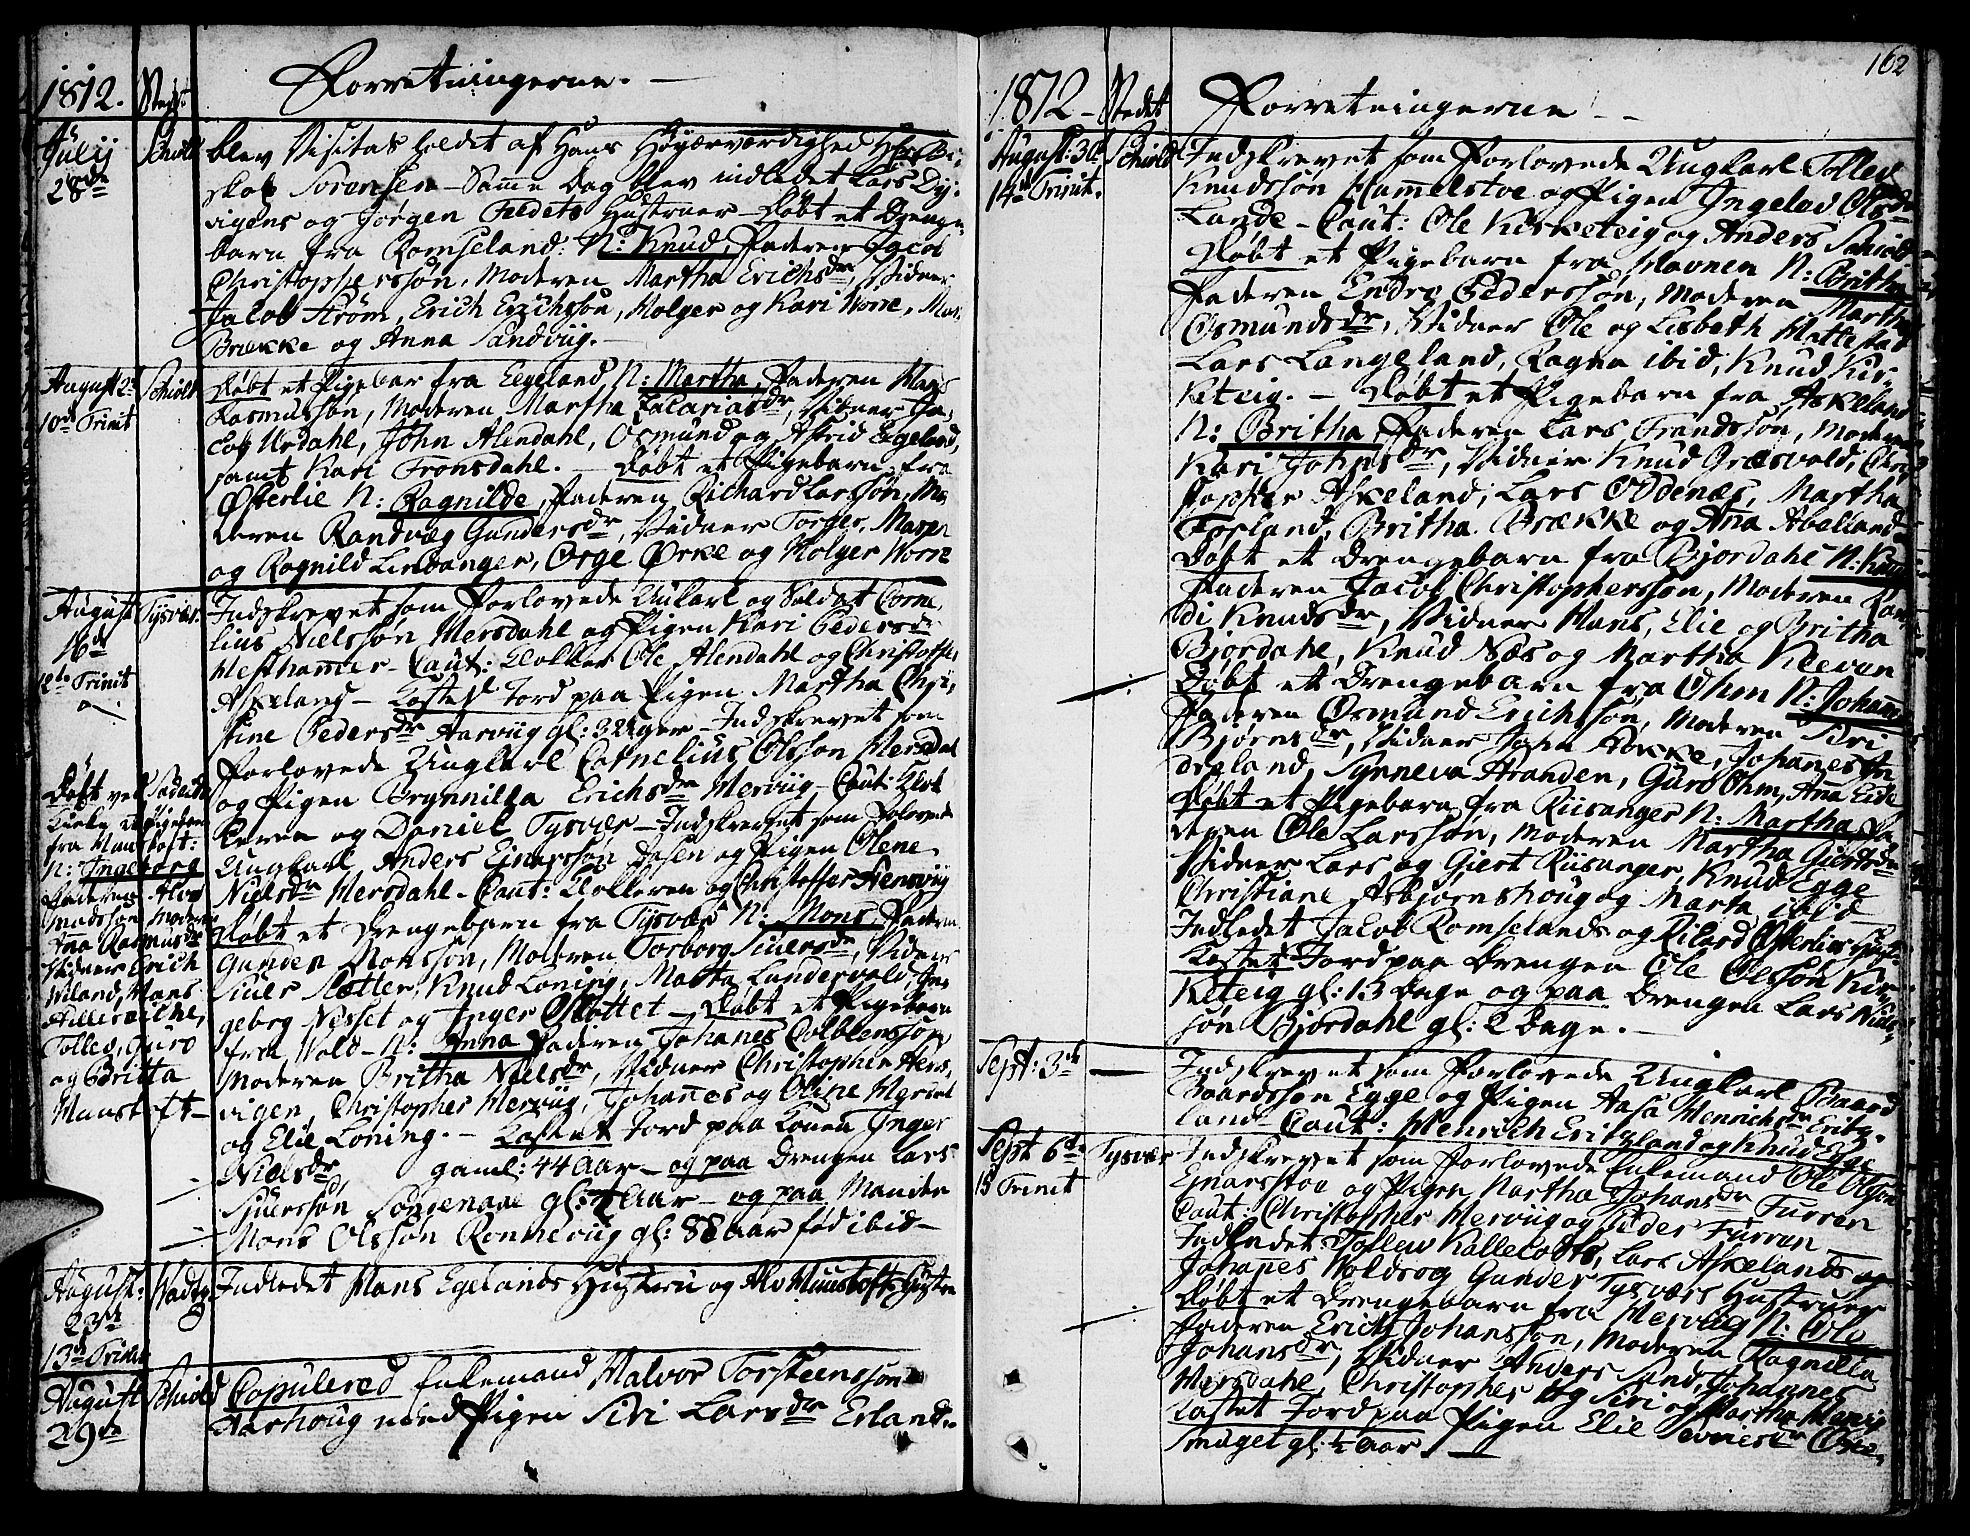 1812. Stedet Forretningerne. —
Julij 28de Schiold blev Visitas holdet af Hans Høyærværdighed Hr Bi-
skop Sorensen - Samme Dag blev indledet Lars Dy-
vigens og Jørgen Feedets Hustruer - Døbt et Drenge-
barn fra Romseland: N: Knud, Faderen Jacob
Christophersson, Moderen Martha Erichsdr, Vidner
Jacob Strøm, Erich Erichsson, Holger og Kari Vorre,
Brække og Anna Sandviig. -
August 2den Schiold Døbt et Pigebar fra Eegeland, N: Martha, Faderen Hans
10de Trinit Rasmussøn, Moderen Martha Zacariasdr, Vidner Ja-
cob Urdahl, John Alendahl, Osmund og Astrid Egeland,
samt Kari Tronsdahl. - Døbt et Pigebarn fra
Østerlie N: Ragnilde Faderen Richard Larssøn, Mo-
deren Randvæg Gundersdr, Vidner Torger, Maren
og Ragnild Lindanger, Ørge Ørke og Holger Vorre
August 16de Tysvær. Indskrevet som Forlovede Unkarl og Soldat Corne-
12te Trinit lius Nielssøn Mersdahl og Pigen Kari Pedersdr
Westhammer - Caut: Klokker Ole Alendahl og Christoffer
Askeland - Kastet Jord paa Pigen Martha Chri-
stine Pedersdr Aarviig gl: 32 Uger - Indskrevet som
Forlovede Ungkarl Cornelius Olsson Mersdal
og Pigen Brynnilla Erichsdr Merviig - Caut: Klok-
keren og Daniel Tysvær - Indskrevet som Folovede
Ungkarl Anders Ejnarssøn og Pigen Olene
Nielsdr Mersdahl - Caut: Klokkeren og Christoffer Hensviig
Døbt et Drengebarn fra Tysvær N: Mons, Faderen
Gunder Monssøn, Moderen Torborg Siversdr, Vidner
Siver Sletten, Knud Loning, Malta Landervold, In-
geborg Nesset og Inger Slottet - Døbt et Pigebarn
fra Vold - N: Anna Faderen Johanes Colblenssøn,
Moderen Britha Nielsdr, Vidner Christopher Hens-
vigen, Christopher Merviig, Johanes og Oline
og Elie Loning. - Kastet Jord paa Konen Inger
Nielsdr gaml: 44 Aar - og paa Drengen Lars
Sjverssøn Aar - og paa Manden
Mons Olssøn Ronneviig gl: 88 Aar fød ibid -
Døbt ved
Kirke et Pigebarn
fra Munstoft:
N: Ingeborg
Faderen Alv
Moderen
Ana Rasmusdr
Vidner Erich
Viland, Hans
Tollev, Guro
og Britta
Munstoft -
August: 23de 13de Trinit Indledet Hans Egelands Hustru og Alv Munstofts Hustru
August 29de Schiold Copulered Enkemand Halvor Torsteenssøn
Aarhoug med Pigen Siri Larsdr Erland -
162
1812 - Stedet Forretningerne - -
August: 30te Schiold Indskrevet som Forlovede Ungkarl Tollev
14de Trinit. Knudssøn Hammelstoe og Pigen Ingelev Olsdr
Lande - Caut: Ole Kirketeig og Anders Schiold
Døbt et Pigebarn fra Havnen N: Britha
Faderen Endre Pederssøn, Moderen Martha
Osmundsdr, Vidner Ole og Lisbeth Mattestad
Lars Langeland, Ragna ibid, Knud Kir-
keteig. - Døbt et Pigebarn fra Askeland
N: Britha, Faderen Lars Trondssøn, Moderen
Kari Johnsdr, Vidner Knud Græsvold, Chri-
stopher Askeland, Lars Oddenæs, Martha
Forland, Britha Brække og Ana Aballand
Døbt et Drengebarn fra Bjordahl N: Knud
Faderen Jacob Christopherssøn, Moderen Ran-
di Knudsdr, Vidner Hans, Elie og Britha
Bjordahl, Knud Næs og Martha Kleevan
Døbt et Drengebarn fra Ohm N: Johanes
Faderen Osmund Erichssøn, Moderen Siri
Bjørnsdr, Vidner John Støkke, Johanes In-
dreland, Synneva Stranden, Guro Ohm, Ana Eide
Døbt et Pigebarn fra Riisanger N: Martha, Fa-
deren Ole Larssøn, Moderen Martha Giertsdr
Vidner Lars og Giert Riisanger, Knud Egge
Christiane Asbjørnshoug og Marta ibid
Indledet Jacob Romselands og Rikard Østerlies Hustr:
Kastet Jord paa Drengen Ole Olssøn Kir-
keteig gl: 13 Dage og paa Drengen Lars Niels-
søn Bjordahl gl: 2 Dage. -
Sept: 3de — Indskrevet som Forlovede Ungkarl Baard
Baardssøn Egge og Pigen Aasa Henrichsdr Eritz-
land - Caut: Henrich Eritzland og Knud Egge
Sept 6te Tysvær Indskrevet som Forlovede Enkemand Ole Olssøn
15 Trinit Ejnarsstoe og Pigen Martha Johansdr Furren
Caut: Christopher Merviig og Peder Furren -
Indledet Tollev Kallekods, Lars Askelands og
Johanes Volds og Gunder Tysværs Hustruer
Døbt et Drengebarn fra Merviig N: Ole
Faderen Erich Johanssøn, Moderen Ragnilla
Johansdr, Vidner Anders Sand, Johannes
Mersdahl, Christopher og Siri og Martha Merviig
Kastet Jord paa Pigen Elie
Smuget gl: ½ Aar. -